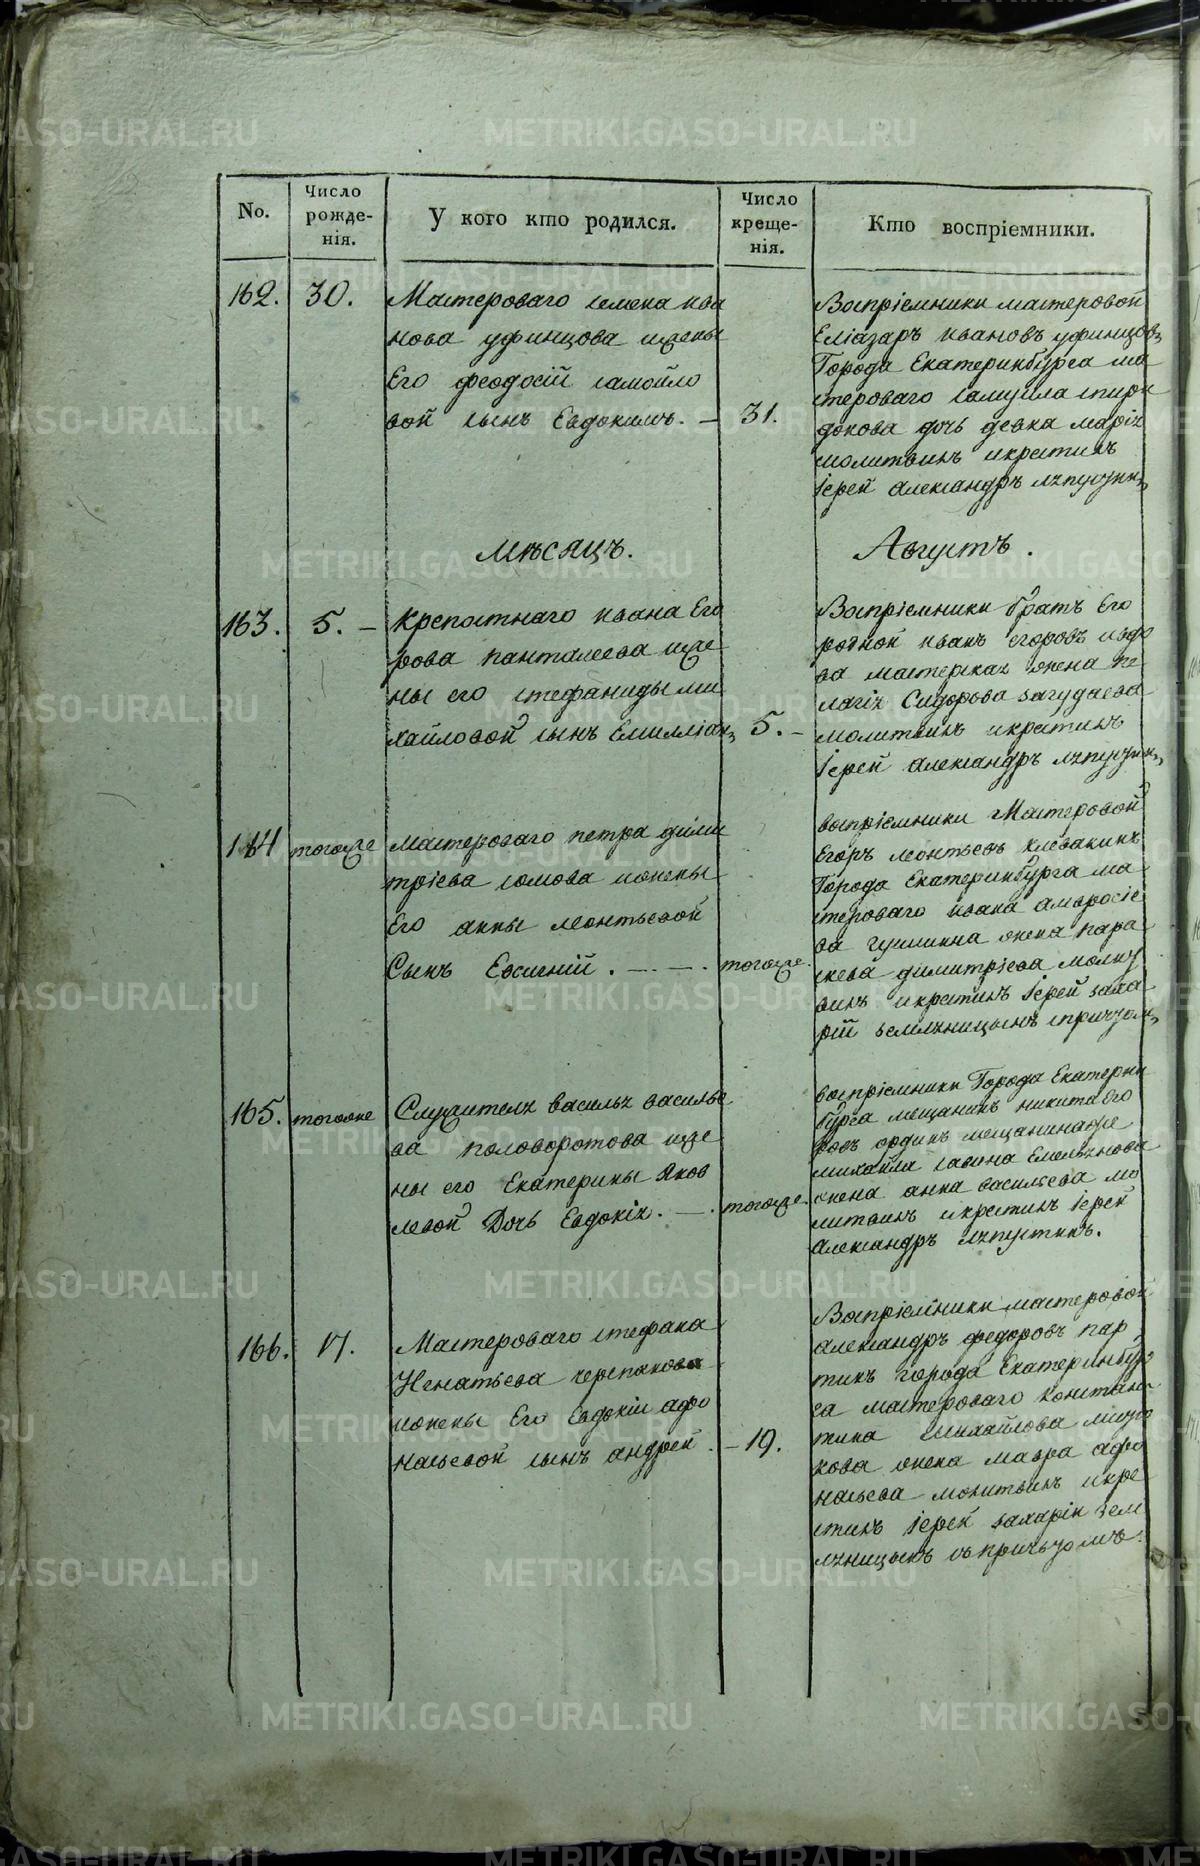 No.
Число
рожде-
нія.
У кого кто родился.
Число
креще-
нія.
Кто воспріемники.
162.
30.
Мастероваго семена ива
нова уфинцова ижены
Его феодосіи самойло
вой сынъ Евдокимъ. —
31.
Воспріемники мастеровой
Еліазаръ ивановъ уфинцовъ
Города Екатеринбурга ма
стероваго самуила спири
донова дочь девка маріѧ
молитвилъ икрестилъ
іерей александръ
Мѣсяцъ.
Августъ.
163.
5. —
крепостнаго ивана Его
рова панталеева иже
ны его стефаниды ми
хайловой сынъ Емилліанъ
5. —
Воспріемники братъ Его
родной иванъ егоровъ
мастерская жена пе
лагіѧ Сидорова загудаева
молитвилъ икрестилъ
іерей александръ
164
тогоже
мастероваго петра дими
тріева сомова ижены
Его анны леонтьевой
Сынъ Евсигній. — . — .
тогоже.
воспріемники Мастеровой
Егоръ леонтьевъ клевакинъ
Города Екатеринбурга ма
стероваго ивана амвросіе
ва жена пара
скева димитріева молит
вилъ икрестилъ іерей заха
рій земляницынъ спричтом
165.
тогоже
Служителѧ василья василье
ва половоротова иже
ны его Екатерины Яков
левой Дочь Евдокіѧ. — .
тогоже.
воспріемники Города Екатерин
бурга мещанинъ никита его
ровъ мещанинаже
михайла савина Емельѧнова
жена анна васильева мо
литвилъ икрестилъ іерей
александръ
166.
17.
Мастероваго стефана
Игнатьева черепанова
ижены Его Евдокіи афо
насьевой сынъ андрей.
— 19.
Воспріемники мастеровой
александръ федоровъ пар
тинъ города Екатеринбур
га мастероваго констан
тина михайлова
кова жена мавра афо
насьева молитвилъ икре
стилъ іерей захарій зем
лѧницынъ съпричьтомъ.
METRIKI.GASO-URAL.RU